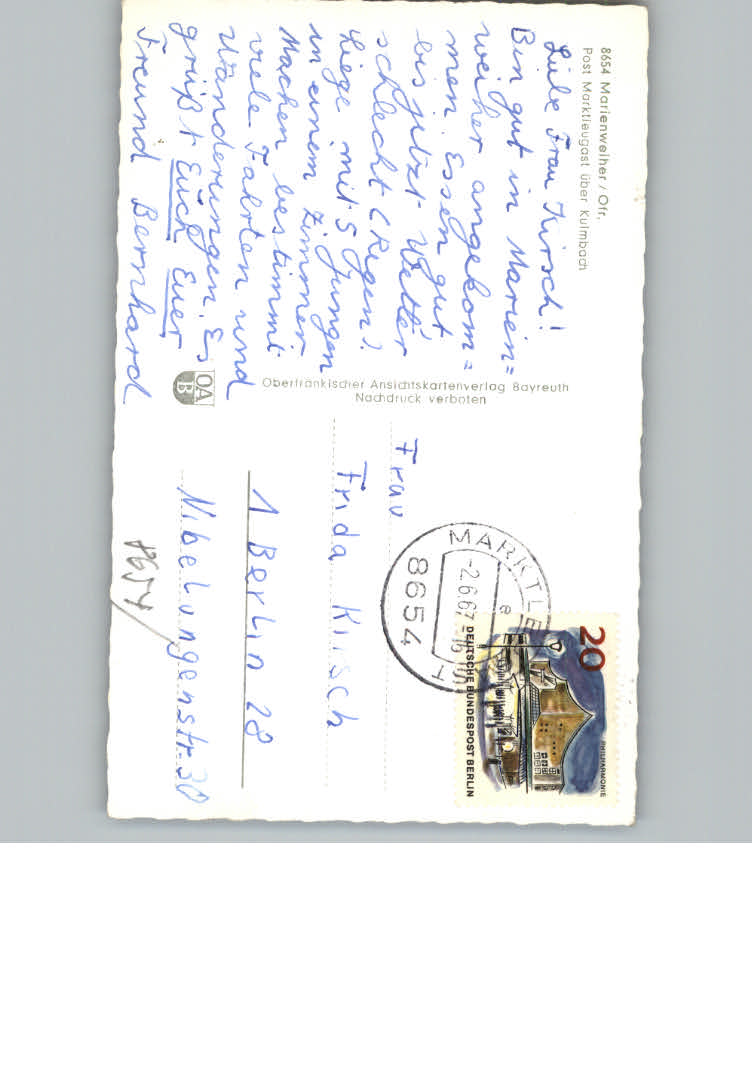 8654 Marienweiher / Ofr.
Post Marktleugast über Kulmbach
Liebe Frau Kirsch!
Bin gut in Marien=
weiher angekom=
men. Essen gut
bis jetzt Wetter
schlecht (Regen).
Liege mit 5 Jungen
in einem Zimmer
Machen bestimmt
viele Fahrten und
Wanderungen. Es
grüßt Euch Euer
Freund Bernhard
Oberfränkischer Ansichtskartenverlag Bayreuth
Nachdruck verboten
OA
B
Frau
Frida Kirsch
1 Berlin 28
Nibelungenstr. 30
8654
MARKTLE
-2.6.67-16
e
8654
20
PHILHARMONIE
DEUTSCHE BUNDESPOST BERLIN